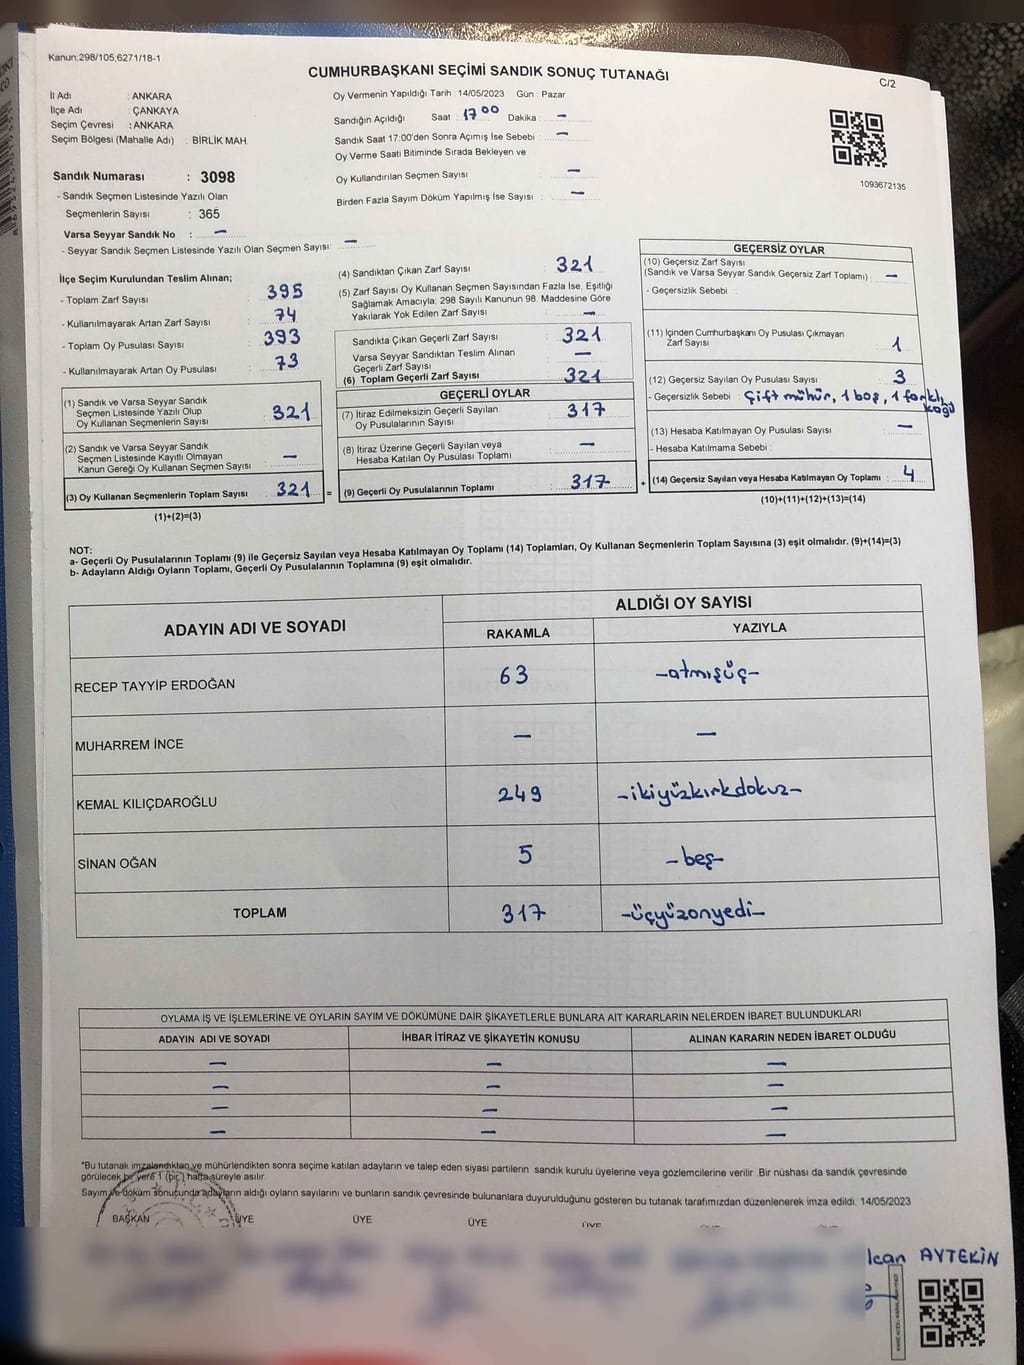 Kanun:298/105;6271/18-1
CUMHURBAŞKANI SEÇİMİ SANDIK SONUÇ TUTANAĞI
C/2
İl Adı : ANKARA
İlçe Adı : ÇANKAYA
Seçim Çevresi : ANKARA
Seçim Bölgesi (Mahalle Adı) : BİRLİK MAH.
Sandık Numarası : 3098
- Sandık Seçmen Listesinde Yazılı Olan
Seçmenlerin Sayısı : 365
Varsa Seyyar Sandık No : —
- Seyyar Sandık Seçmen Listesinde Yazılı Olan Seçmen Sayısı: —
Oy Vermenin Yapıldığı Tarih : 14/05/2023 Gün : Pazar
Sandığın Açıldığı Saat : 17 00 Dakika : —
Sandık Saat 17:00'den Sonra Açımış İse Sebebi : —
Oy Verme Saati Bitiminde Sırada Bekleyen ve
Oy Kullandırılan Seçmen Sayısı : —
Birden Fazla Sayım Döküm Yapılmış İse Sayısı : —
1093672135
İlçe Seçim Kurulundan Teslim Alınan;
- Toplam Zarf Sayısı : 395
- Kullanılmayarak Artan Zarf Sayısı : 74
- Toplam Oy Pusulası Sayısı : 393
- Kullanılmayarak Artan Oy Pusulası : 73
(1) Sandık ve Varsa Seyyar Sandık
Seçmen Listesinde Yazılı Olup
Oy Kullanan Seçmenlerin Sayısı : 321
(2) Sandık ve Varsa Seyyar Sandık
Seçmen Listesinde Kayıtlı Olmayan
Kanun Gereği Oy Kullanan Seçmen Sayısı : —
(3) Oy Kullanan Seçmenlerin Toplam Sayısı : 321 =
(1)+(2)=(3)
(4) Sandıktan Çıkan Zarf Sayısı : 321
(5) Zarf Sayısı Oy Kullanan Seçmen Sayısından Fazla İse, Eşitliği
Sağlamak Amacıyla; 298 Sayılı Kanunun 98. Maddesine Göre
Yakılarak Yok Edilen Zarf Sayısı : —
Sandıkta Çıkan Geçerli Zarf Sayısı : 321
Varsa Seyyar Sandıktan Teslim Alınan
Geçerli Zarf Sayısı : —
(6) Toplam Geçerli Zarf Sayısı : 321
GEÇERLİ OYLAR
(7) İtiraz Edilmeksizin Geçerli Sayılan
Oy Pusulalarının Sayısı : 317
(8) İtiraz Üzerine Geçerli Sayılan veya
Hesaba Katılan Oy Pusulası Toplamı : —
(9) Geçerli Oy Pusulalarının Toplamı : 317 +
GEÇERSİZ OYLAR
(10) Geçersiz Zarf Sayısı
(Sandık ve Varsa Seyyar Sandık Geçersiz Zarf Toplamı) : —
- Geçersizlik Sebebi :
(11) İçinden Cumhurbaşkanı Oy Pusulası Çıkmayan
Zarf Sayısı : 1
(12) Geçersiz Sayılan Oy Pusulası Sayısı : 3
- Geçersizlik Sebebi : Çift mühür, 1 boş, 1 farklı
(13) Hesaba Katılmayan Oy Pusulası Sayısı : —
- Hesaba Katılmama Sebebi :
(14) Geçersiz Sayılan veya Hesaba Katılmayan Oy Toplamı : 4
(10)+(11)+(12)+(13)=(14)
NOT:
a- Geçerli Oy Pusulalarının Toplamı (9) ile Geçersiz Sayılan veya Hesaba Katılmayan Oy Toplamı (14) Toplamları, Oy Kullanan Seçmenlerin Toplam Sayısına (3) eşit olmalıdır. (9)+(14)=(3)
b- Adayların Aldığı Oyların Toplamı, Geçerli Oy Pusulalarının Toplamına (9) eşit olmalıdır.
ADAYIN ADI VE SOYADI
ALDIĞI OY SAYISI
RAKAMLA YAZIYLA
RECEP TAYYİP ERDOĞAN 63 -atmışüç-
MUHARREM İNCE — —
KEMAL KILIÇDAROĞLU 249 -ikiyüzkırkdokuz-
SİNAN OĞAN 5 -beş-
TOPLAM 317 -üçyüzonyedi-
OYLAMA İŞ VE İŞLEMLERİNE VE OYLARIN SAYIM VE DÖKÜMÜNE DAİR ŞİKAYETLERLE BUNLARA AİT KARARLARIN NELERDEN İBARET BULUNDUKLARI
ADAYIN ADI VE SOYADI İHBAR İTİRAZ VE ŞİKAYETİN KONUSU ALINAN KARARIN NEDEN İBARET OLDUĞU
— — —
— — —
— — —
— — —
*Bu tutanak imzalandıktan ve mühürlendikten sonra seçime katılan adayların ve talep eden siyasi partilerin sandık kurulu üyelerine veya gözlemcilerine verilir. Bir nüshası da sandık çevresinde
görülecek bir yere 1 (bir) hafta süreyle asılır.
Sayım ve döküm sonucunda adayların aldığı oyların sayılarını ve bunların sandık çevresinde bulunanlara duyurulduğunu gösteren bu tutanak tarafımızdan düzenlenerek imza edildi. 14/05/2023
BAŞKAN ÜYE ÜYE ÜYE ÜYE
lcan AYTEKİN